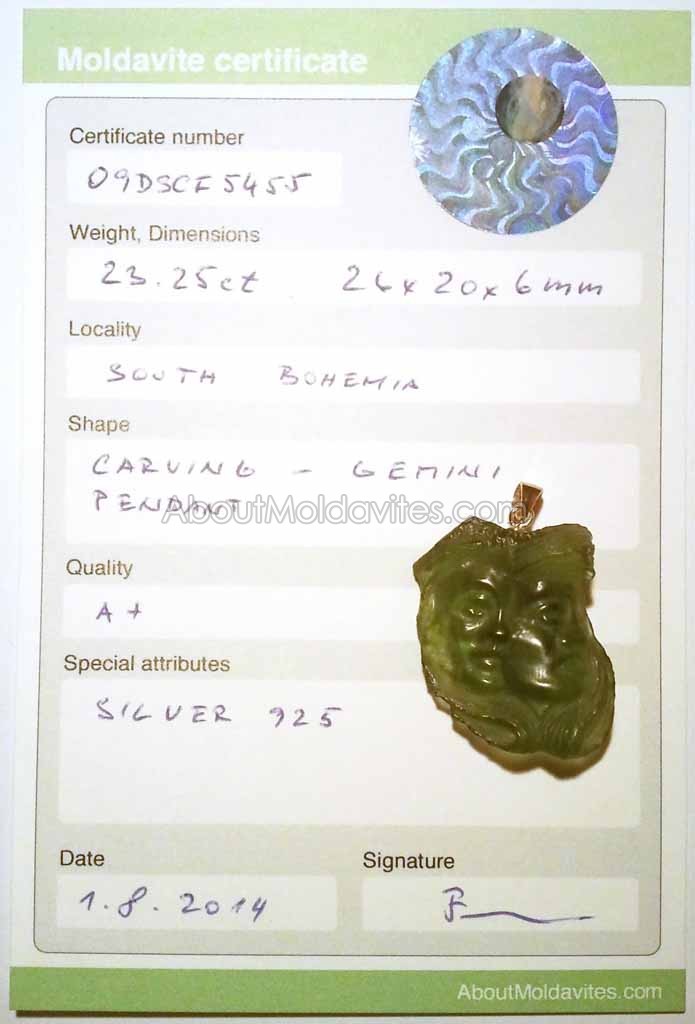 Moldavite certificate
Certificate number
09DSCF5455
Weight, Dimensions
23.25ct 26x20x6mm
Locality
SOUTH BOHEMIA
Shape
CARVING - GEMINI
PENDANT
AboutMoldavites.com
Quality
A+
Special attributes
SILVER 925
Date
Signature
1.8.2014
AboutMoldavites.com